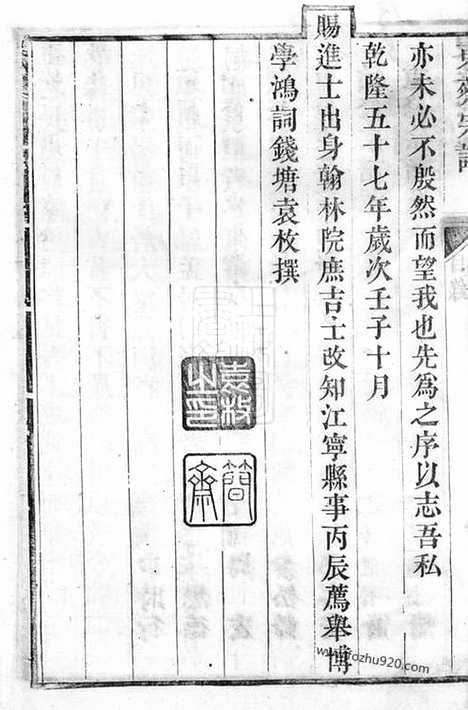 亦未必不殷然而望我也先爲之序以志吾私
乾隆五十七年歲次壬子十月
賜進士出身翰林院庶吉士改知江寧縣事丙辰薦舉博
學鴻詞錢塘袁枚撰
袁枚之印
簡齋
www.fozhu920.com